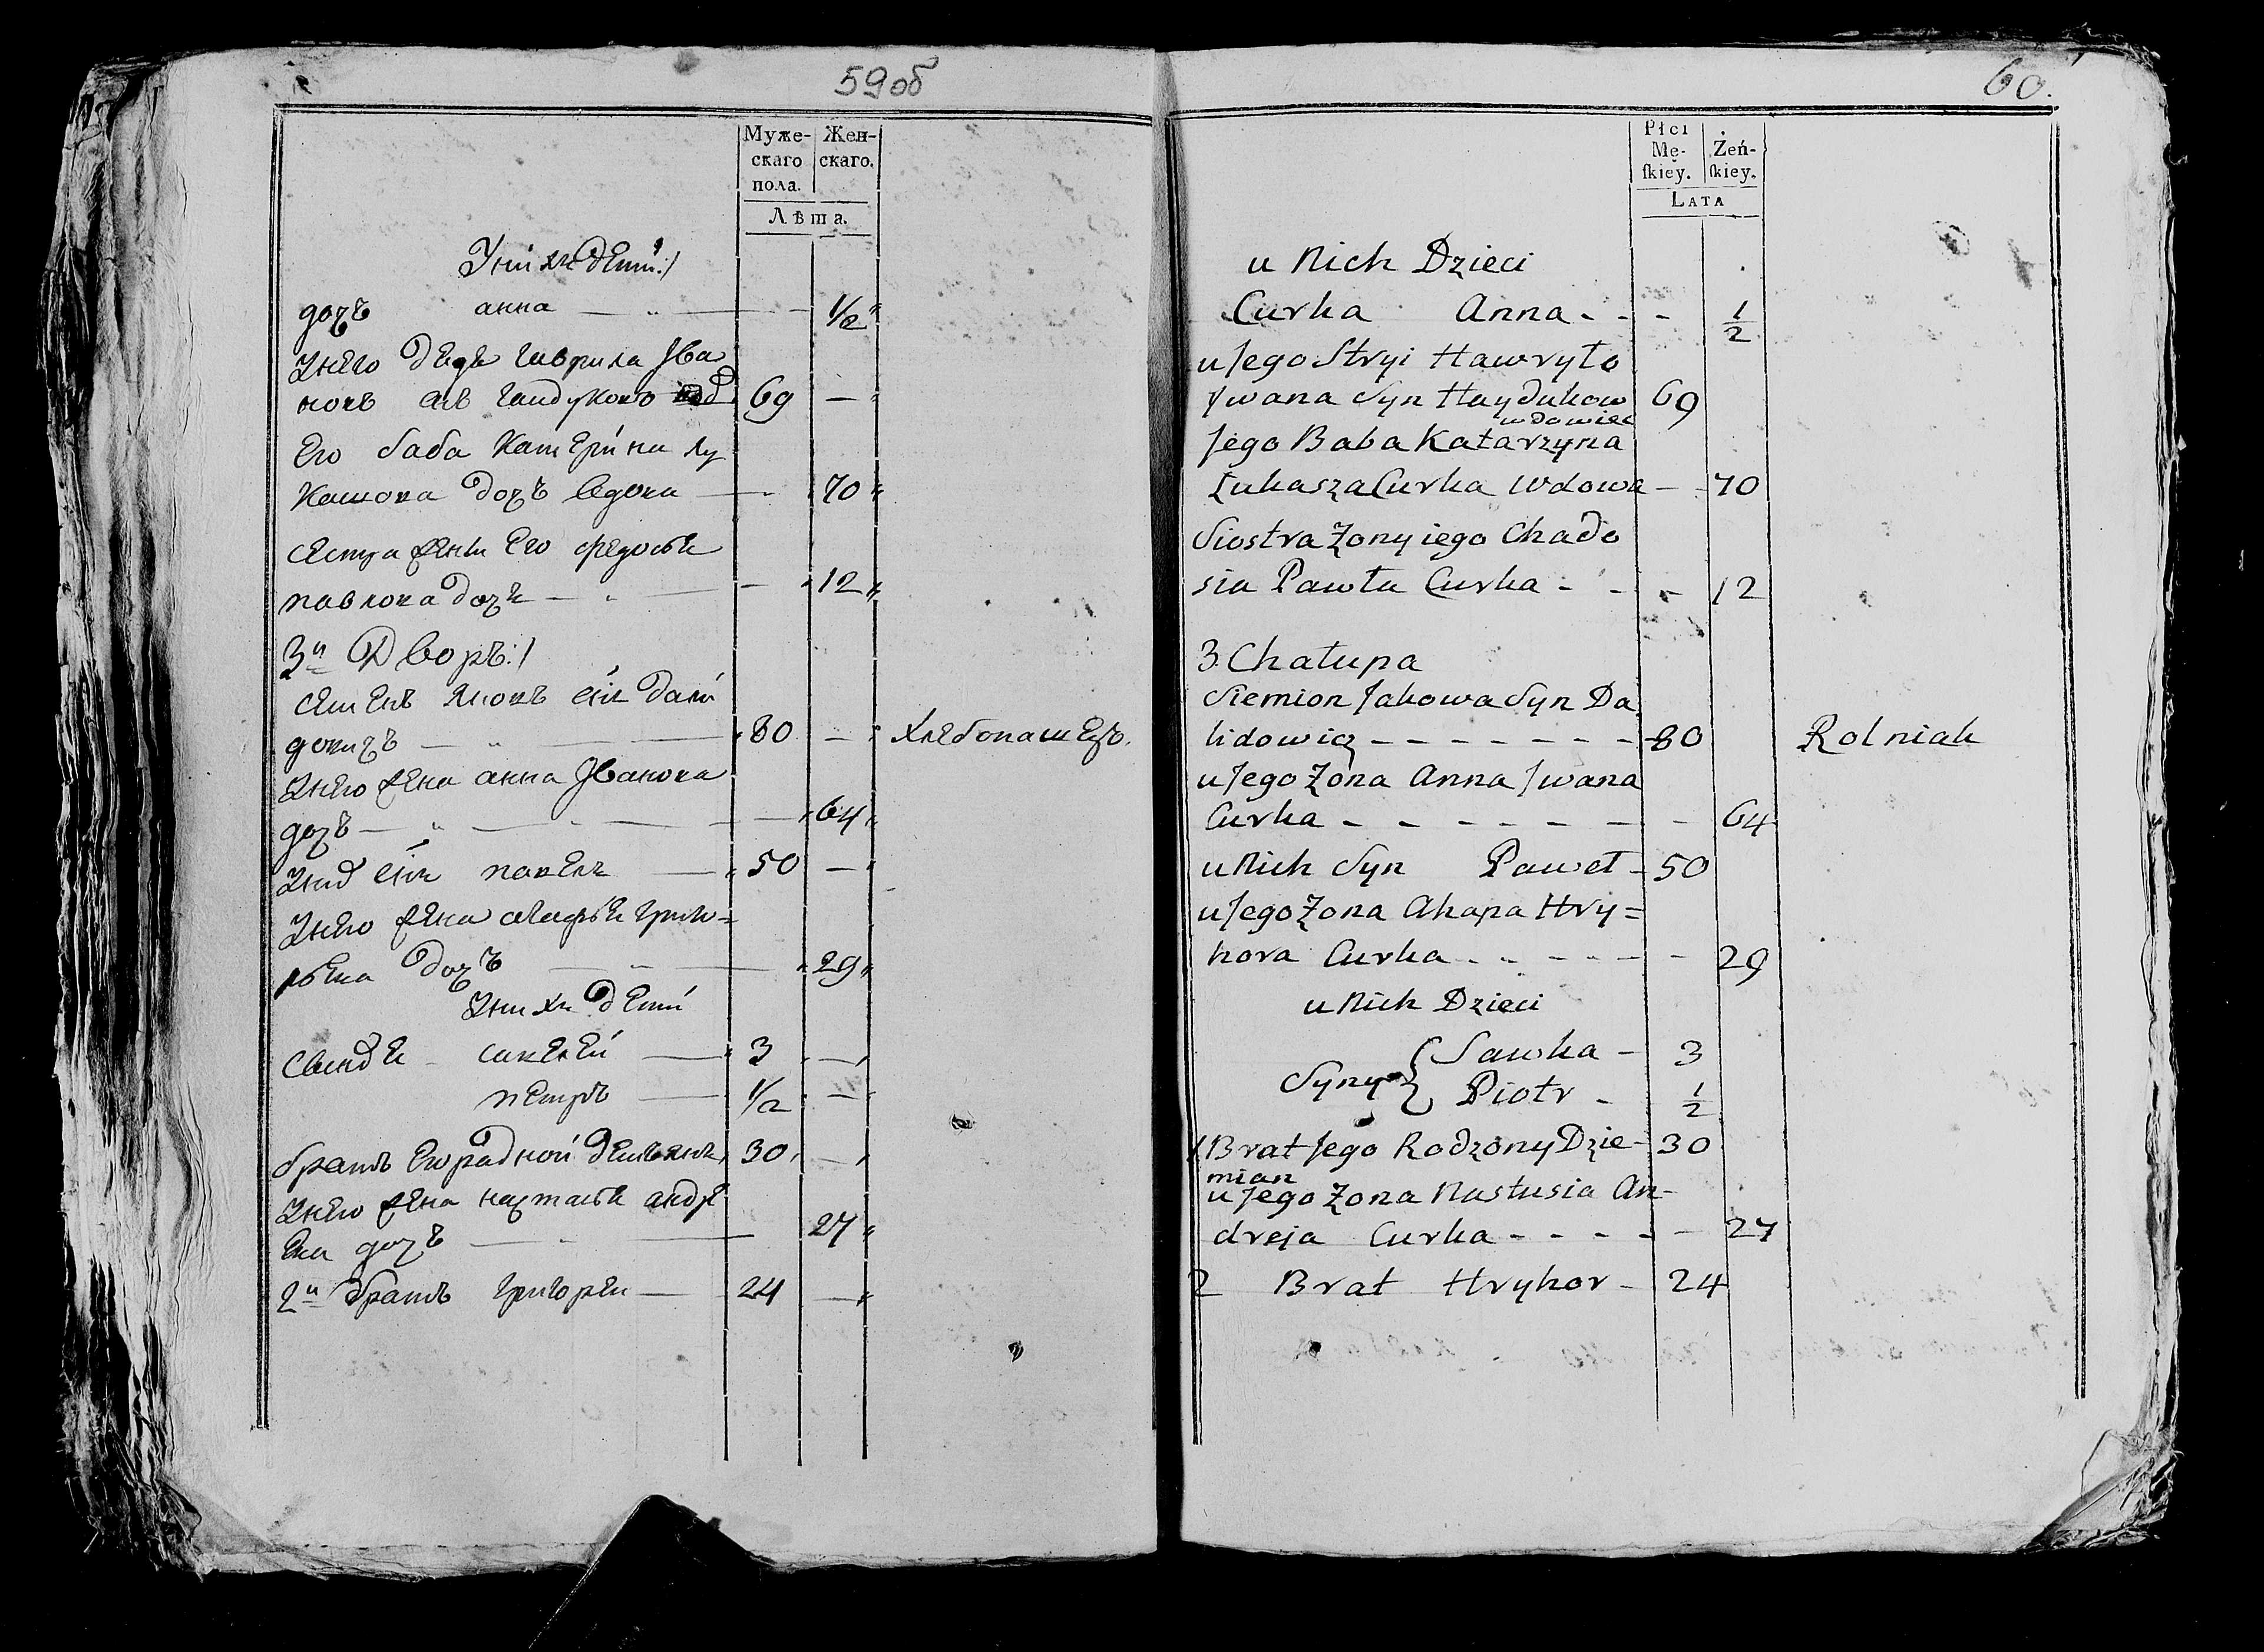 59об
Муже-
скаго
пола.
Жен-
скаго.
Лѣта.
Унихъ дети:/
дочъ анна ½
Унего дядя гаврила Ива
новъ 69
Его баба Катерина лу
кашова дочъ вдова 70
сестра жены Его федосья
павлова дочь 12
3й Дворъ:/
семенъ яковъ сынъ дали
довичъ 80 Хлебопашецъ.
Унего жена анна Иванова
дочъ 64
сынъ павелъ 50
Унего жена агафья григо=
рьева дочъ 29
Унихъ дети
савелей 3
петръ ½
братъ Его родной демьянъ 30
Унего жена настасья андре
ева дочъ 27
2й братъ григорей 24
60.
Płci
Mę-
ſkiey.
Żeń-
ſkiey.
LATA
u Nich Dzieci
Curka Anna - - - ½
u Jego Stryi Hawryło
Jwana Syn Haydukow 69
wdowiec
Jego Baba Katarzyna
Łukasza Curka Wdowa - - 70
Siostra Żony iego Chado
sia Pawła Curka - - - 12
3. Chałupa
Siemion Jakowa Syn Da
lidowicz - - - - - - - 80 Rolnik
u Jego Żona Anna Jwana
Curka - - - - - - - 64
u Nich Syn Paweł - 50
u Jego Żona Ahapa Hry=
hora Curka - - - - - - 29
u Nich Dzieci
Syny { Sawka - 3
Piotr - ½
1 Brat Jego Rodzony Dzie- 30
mian
u Jego Żona Nastusia An-
dreja Curka - - - - - 27
2 Brat Hryhor - 24